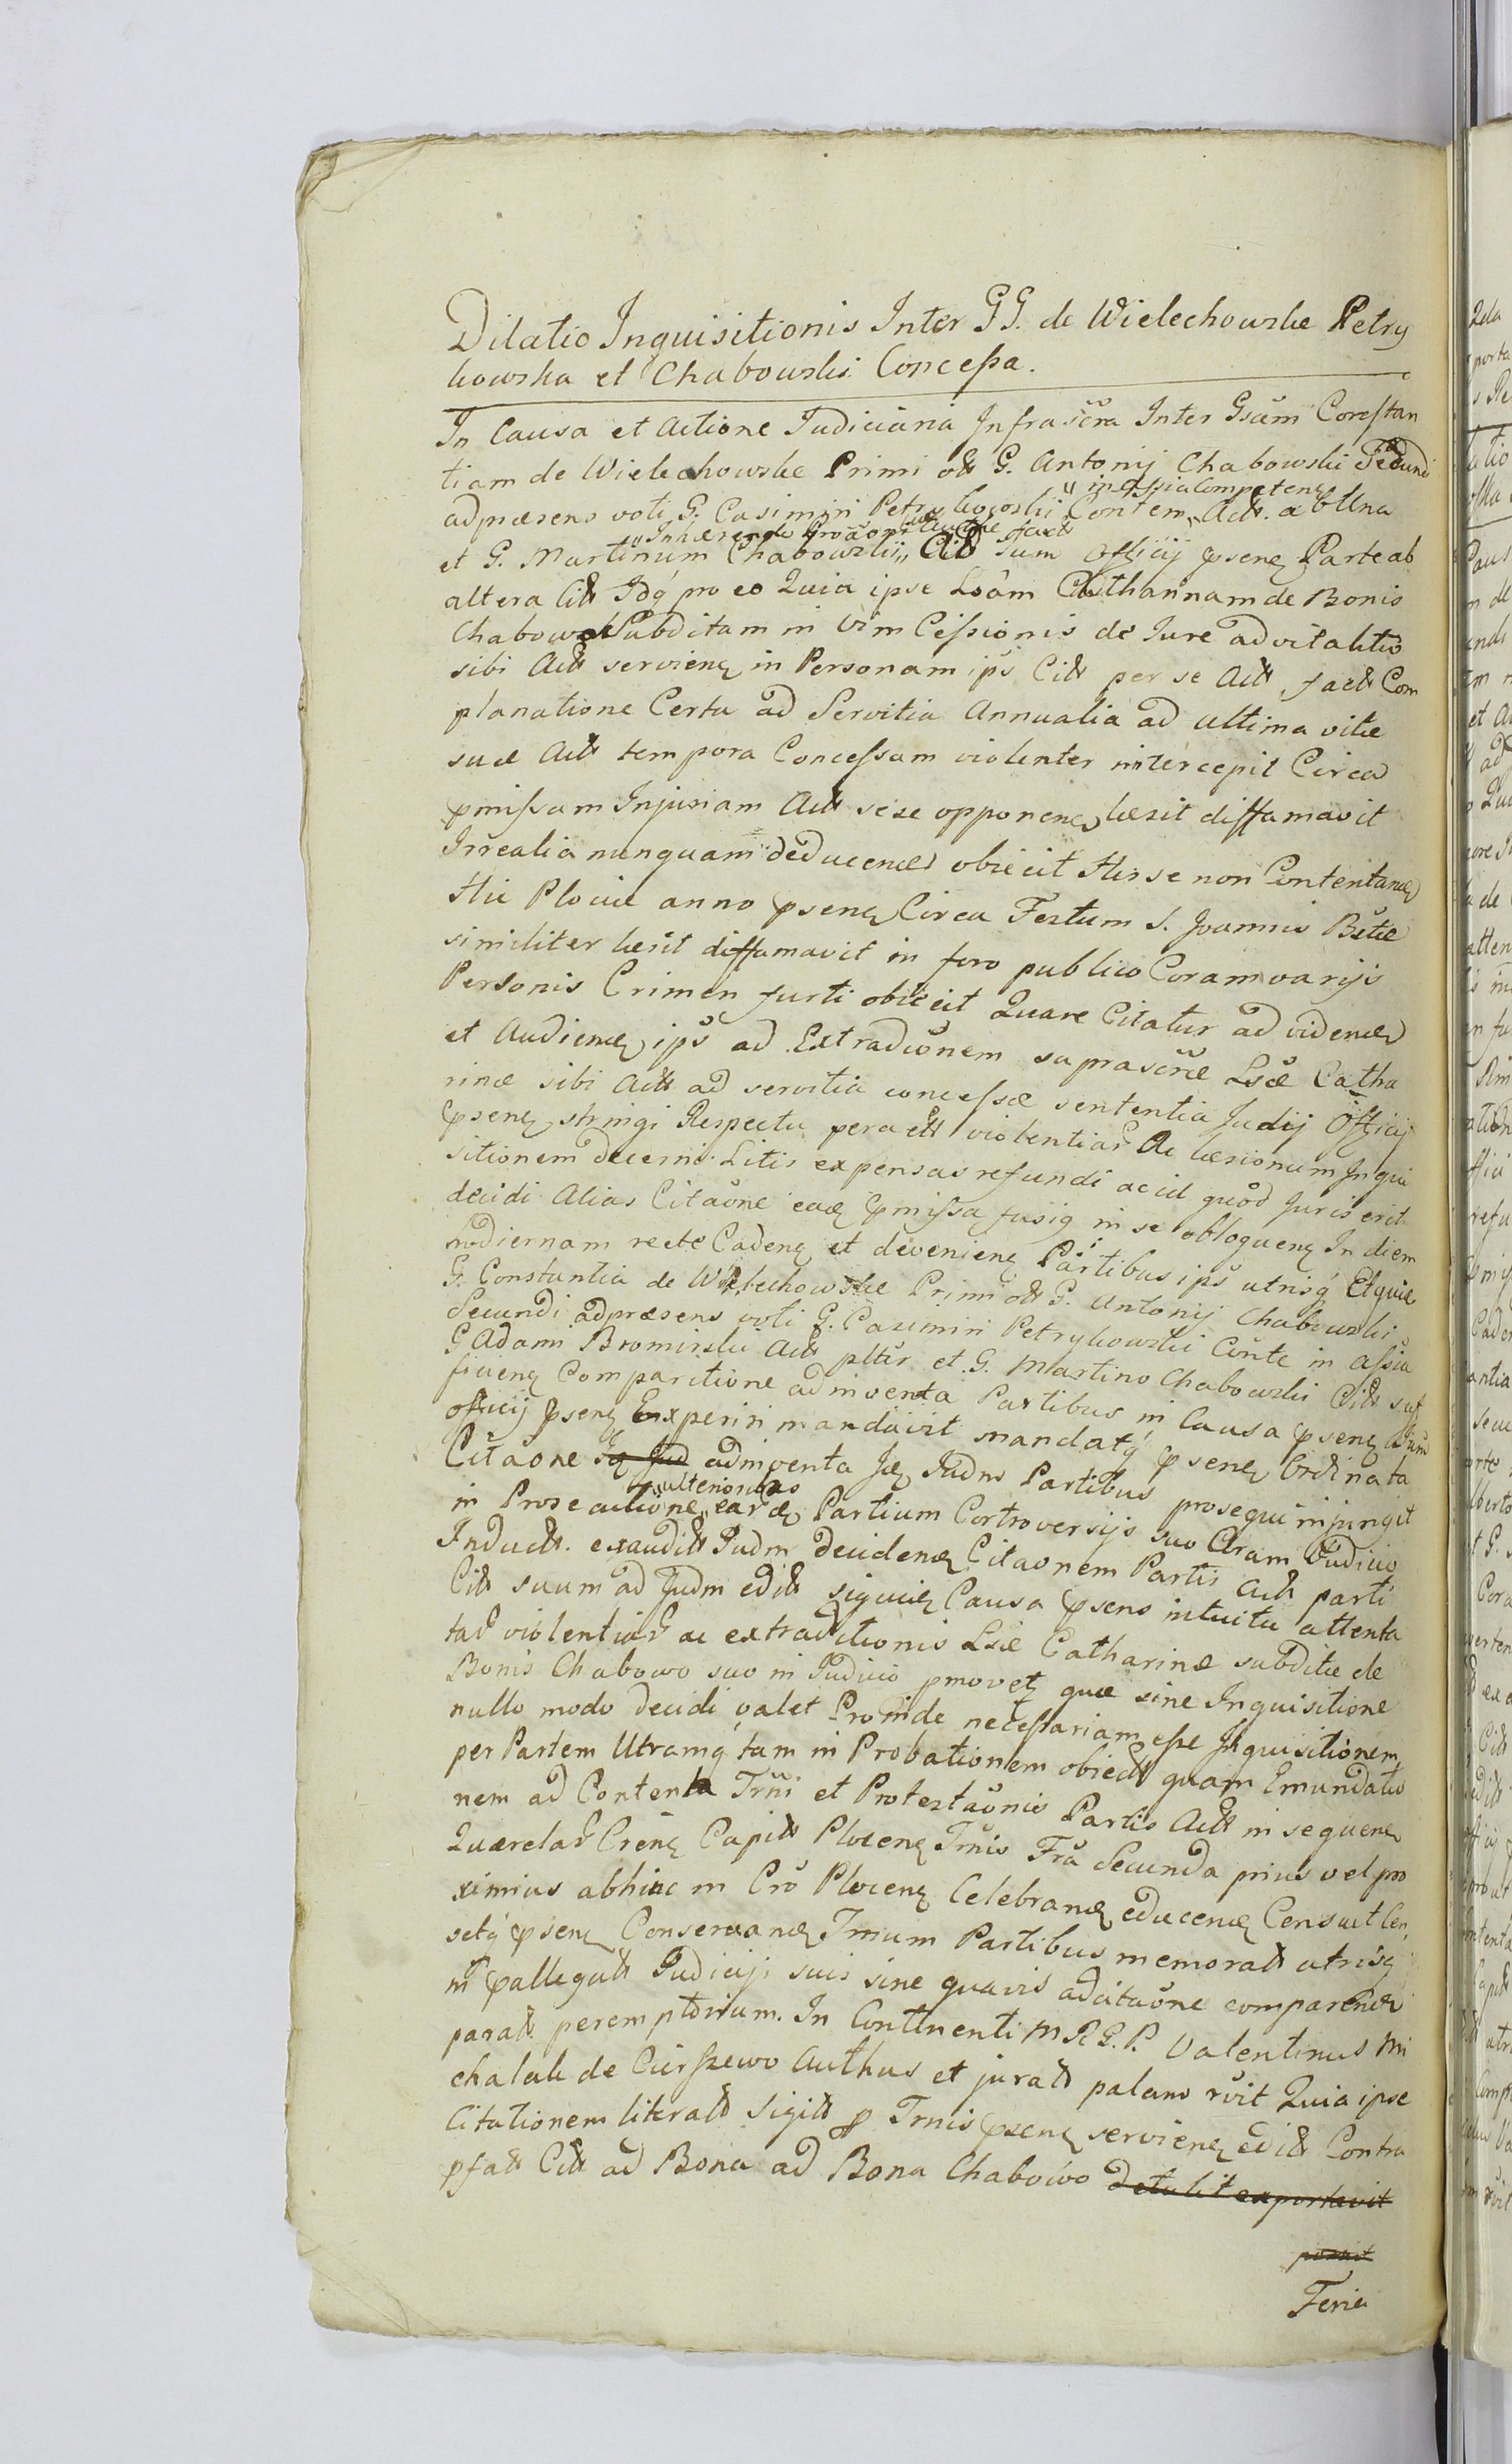 Dilatio Inquisitionis Inter GG. de Wielechowskie Petry
kowska et Chabowski Concessa.
In Causa et Actione Judiciaria Infrascrã Inter Gsam Constan
tiam de Wielechowskie Primi ott G. Antonij Chabowski Secundi
adpræsens voti G. Casimiri Petrykowski Contem „ in Assia Competenᶎ Actt. ab Una
et G. Martinum Chabowski „ Inhærendo Citt sum Officij pseneᶎ Parte ab
altera Citt Idq́ pro eo Quia ipse Lsam Catharinam de Bonis
Chabowo Subditam in Vim Cessionis de Jure advitalitio
sibi Actt servieneᶎ in Personam ips Citt per se Actt factt Com
planatione Certa ad Servitia Annualia ad ultima vitæ
suæ Actt tempora Concessam violenter intercepit Circa
pmissam Injuriam Actt sese opponeneᶎ læsit diffamavit
Irrealia nunquam deduceneᶎ obiecit His se non Contentaneᶎ
Hic Plociæ anno pseneᶎ Circa Festum S. Joannis Btæ
similiter læsit diffamavit in foro publico Coram varijs
Personis Crimen furti obiecit Quare Citatur ad videneᶎ
et Audieneᶎ ips ad Extradõnem suprascrĩæ Lsæ Catha
rinæ sibi Actt ad servitia concessæ sententia Judij Officij
pseneᶎ stringi Respectu peractt violentiar Ac læsionum Inqui
sitionem decerni Litis expensas refundi ac id quod Juris erit
decidi Alias Citaõne eaᶎ pmissa fusiᶎ in se obloqueneᶎ In diem
hodiernam recte Cadeneᶎ et devenieneᶎ Partibus ips utrisq́ Et quia
G. Constantia de Wielechowskie Primi ott G. Antonij Chabowski
Secundi adpræsens voti G. Casimiri Petrykowski Cõnte in assia
G Adami Bromirski Actt pltŭr et G. Martino Chabowski Citt suf
ficieneᶎ Comparitione adinventa Partibus in Causa pseneᶎ
officij pseneᶎ Experiri mandavit mandatq́ pseneᶎ Ordinata
Citaõne adinventa Jᶎ Judm Partibus prosequi injungit
in Prosecutione „ ulterioribus earᶎ Partium Controversijs suo Coram Judicio
Inductt. exauditt Judm decideneᶎ Citaonem Partis Actt parti
Citt suum ad Judm editt siquidᶎ Causa psens intuitu attenta
tar violentiar ac extraditionis Lsæ Catharinæ subditæ de
Bonis Chabowo suo in Judicio pmovetᶎ quæ sine Inquisitione
nullo modo decidi valet Proinde necessariam esse Inquisitionem
per Partem Utramq́ tam in Probationem obiectt quam Emundatio
nem ad Contenta Trni et Protestaõnis Partis Actt in sequeneᶎ
Querelar Creneᶎ Capitt Ploceneᶎ Trnis Fra Secunda prius vel pro
ximius abhinc in Cro Ploceneᶎ Celebraneᶎ educeneᶎ Censuit Cen
setq́ pseneᶎ Conservaneᶎ Trnum Partibus memoratt utrisq́
in palleyatt Judicijs suis sine quavis adcitaõne compareneᶎ
paratt peremptorium. In Continenti M R G. P. Valentinus Mi
chalak de Cierszewo Authus et juratt palam rvit Quia ipse
Citationem literatt Sigitt p Trnis pseneᶎ servieneᶎ editt Contra
pfatt Citt ad Bona ad Bona Chabowo detulit exportavit
Feria